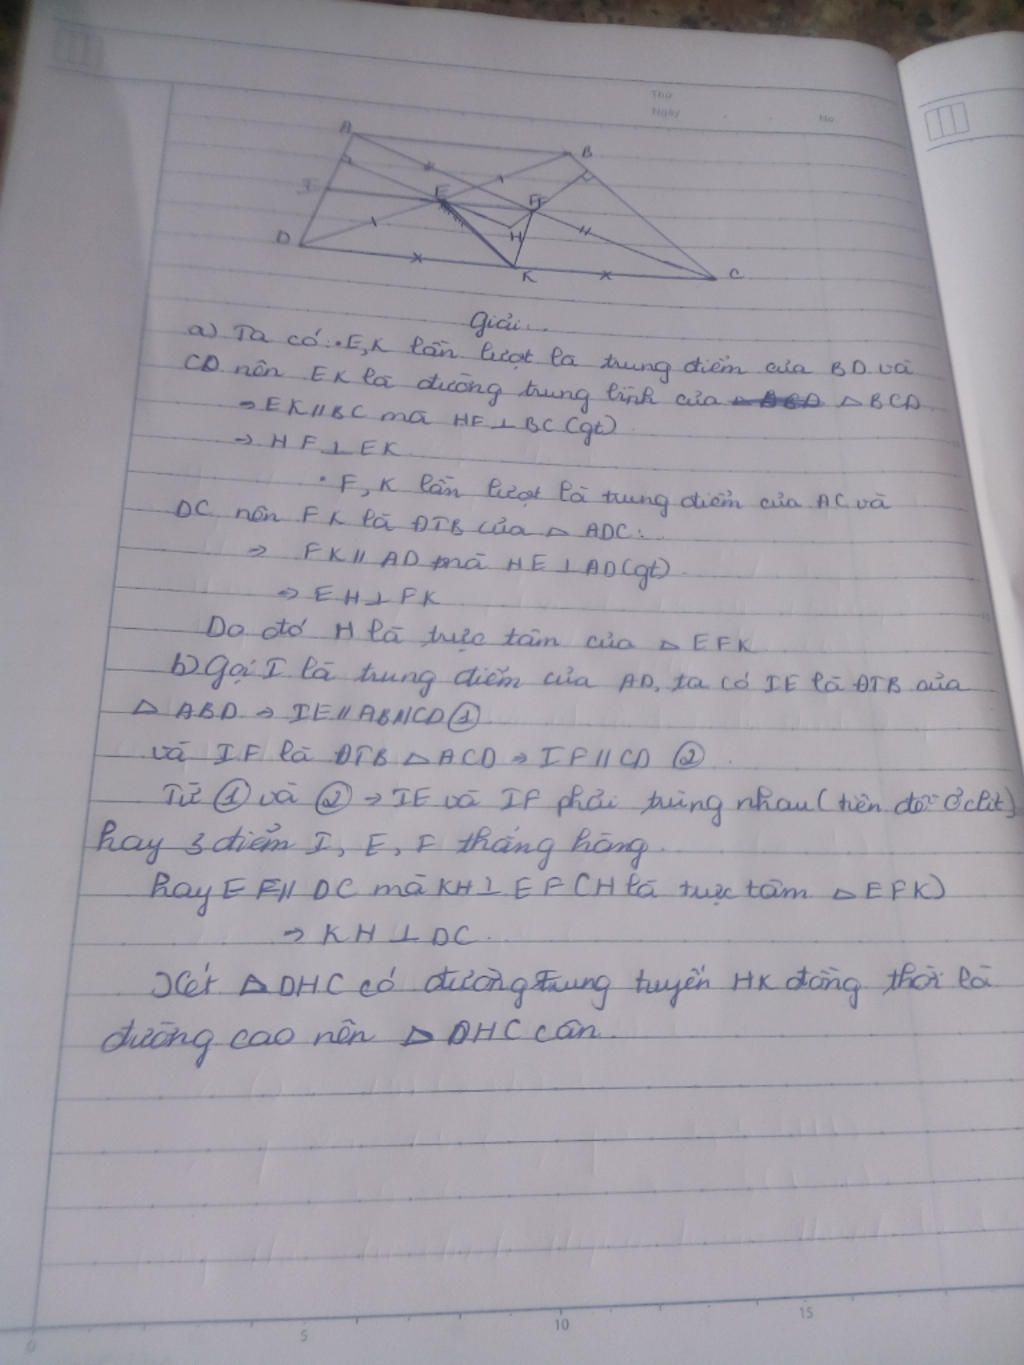 Thứ
Ngày
No
A
B
I
E
F
H
D
K
C
Giải...
a) Ta có: • E, K lần lượt là trung điểm của BD và
CD nên EK là đường trung bình của △ BCD
⇒ EK // BC mà HF ⊥ BC (gt)
⇒ HF ⊥ EK
• F, K lần lượt là trung điểm của AC và
DC nên FK là ĐTB của △ ADC.
⇒ FK // AD mà HE ⊥ AD (gt)
⇒ EH ⊥ FK
Do đó H là trực tâm của △ EFK
b) Gọi I là trung điểm của AD, ta có IE là ĐTB của
△ ABD ⇒ IE // AB // CD ①
và IF là ĐTB △ ACD ⇒ IF // CD ②
Từ ① và ② ⇒ IE và IF phải trùng nhau (tiên đề Ơclit)
hay 3 điểm I, E, F thẳng hàng.
hay EF // DC mà KH ⊥ EF (H là trực tâm △ EFK)
⇒ KH ⊥ DC.
Xét △ DHC có đường trung tuyến HK đồng thời là
đường cao nên △ DHC cân.
0 5 10 15